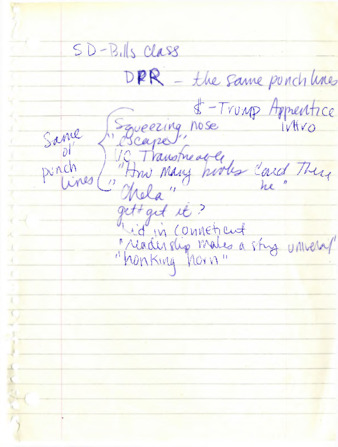 SD-Bills class
DPR - the same punch lines
$-Trump Apprentice
intro
Same
of
punch
lines
Squeezing nose
"escape"
is Transferable
"How many books could There
be"
get get it?
in Conneticut
"leadership makes a universal"
"honking horn"